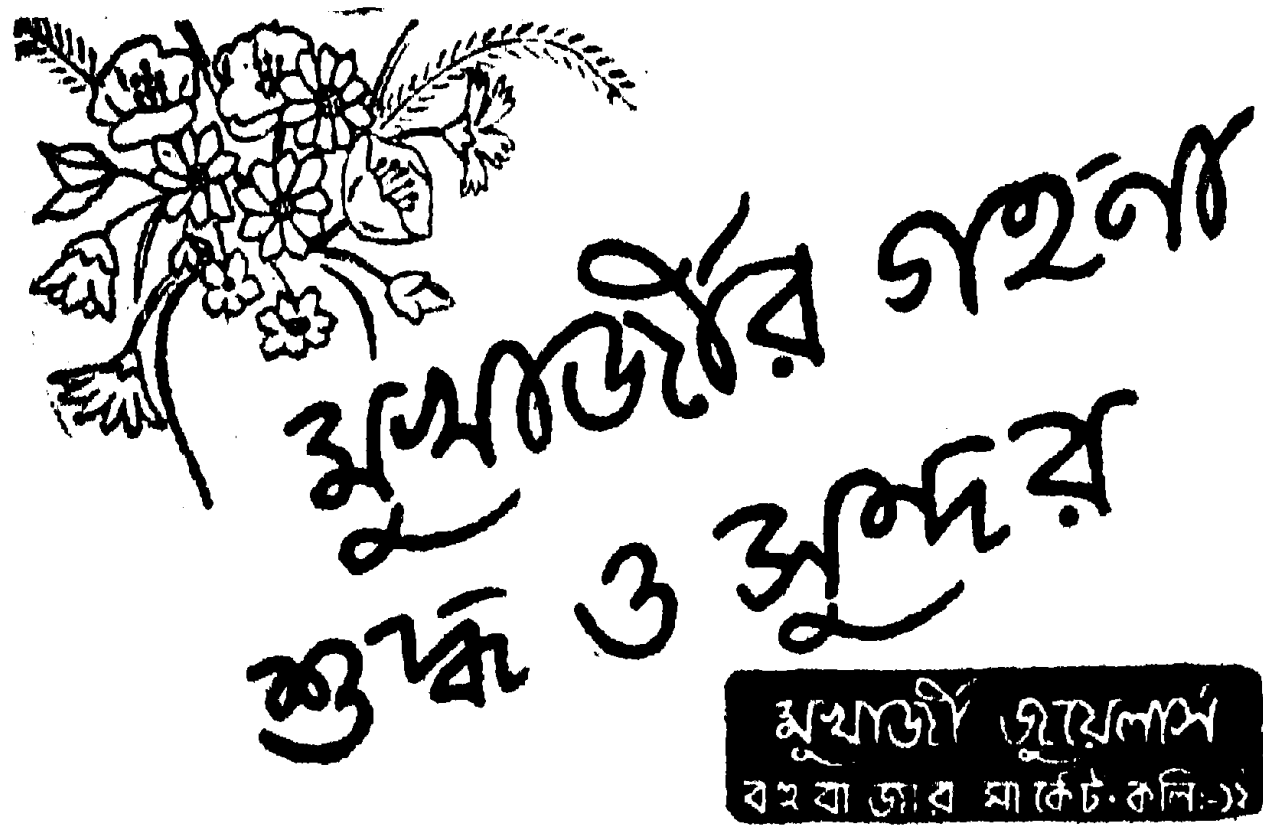 মুখার্জীর গহনা
শুদ্ধ ও সুন্দর
মুখার্জী জুয়েলার্স
বহুবাজার মার্কেট·কলি:-১২